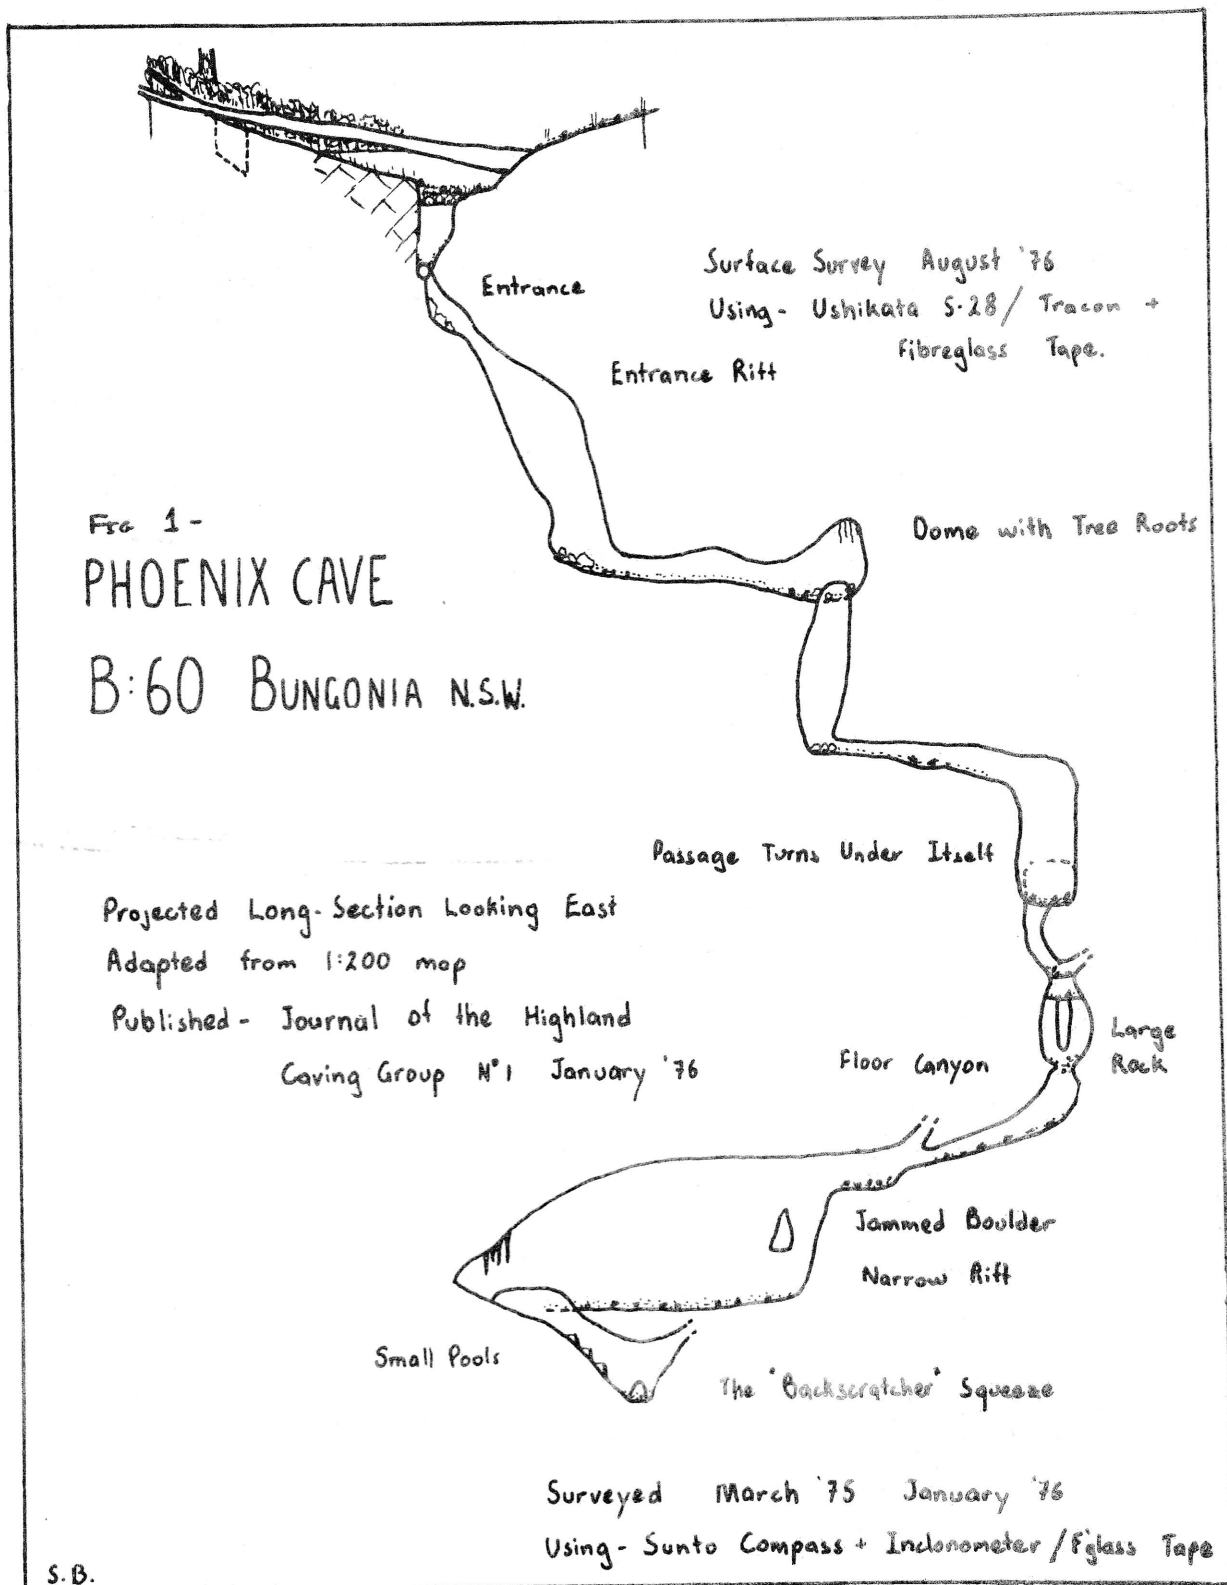 Entrance
Surface Survey August '76
Using- Ushikata S-28/ Tracon +
Fibreglass Tape.
Entrance Rift
FIG 1-
PHOENIX CAVE
B:60 BUNGONIA N.S.W.
Dome with Tree Roots
Passage Turns Under Itself
Projected Long-Section Looking East
Adapted from 1:200 map
Published- Journal of the Highland
Caving Group Nº1 January '76
Large
Rock
Floor Canyon
Jammed Boulder
Narrow Rift
Small Pools
The "Backscratcher" Squeeze
Surveyed March '75 January '76
Using- Sunto Compass + Inclonometer / F'glass Tape
S.B.